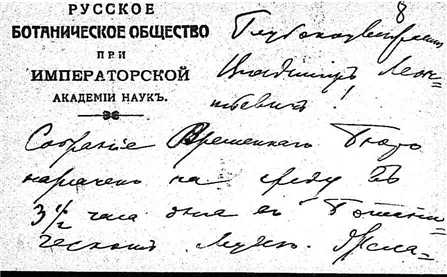 РУССКОЕ
БОТАНИЧЕСКОЕ ОБЩЕСТВО
ПРИ
ИМПЕРАТОРСКОЙ
АКАДЕМІИ НАУКЪ.
8
Глубокоуважаемый
Владимиръ Леон=
тьевичъ!
Собраніе Временнаго Бюро
назначено на среду въ
3 1/2 часа дня въ Ботани=
ческомъ Музеѣ.